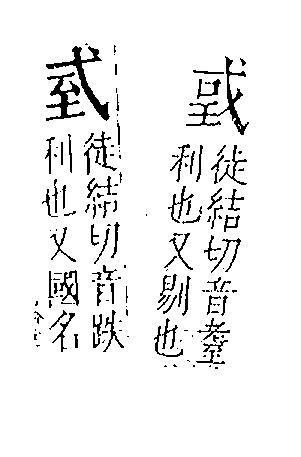 戜
徒結切音耋
利也又剔也
徒結切音跌
利也又國名